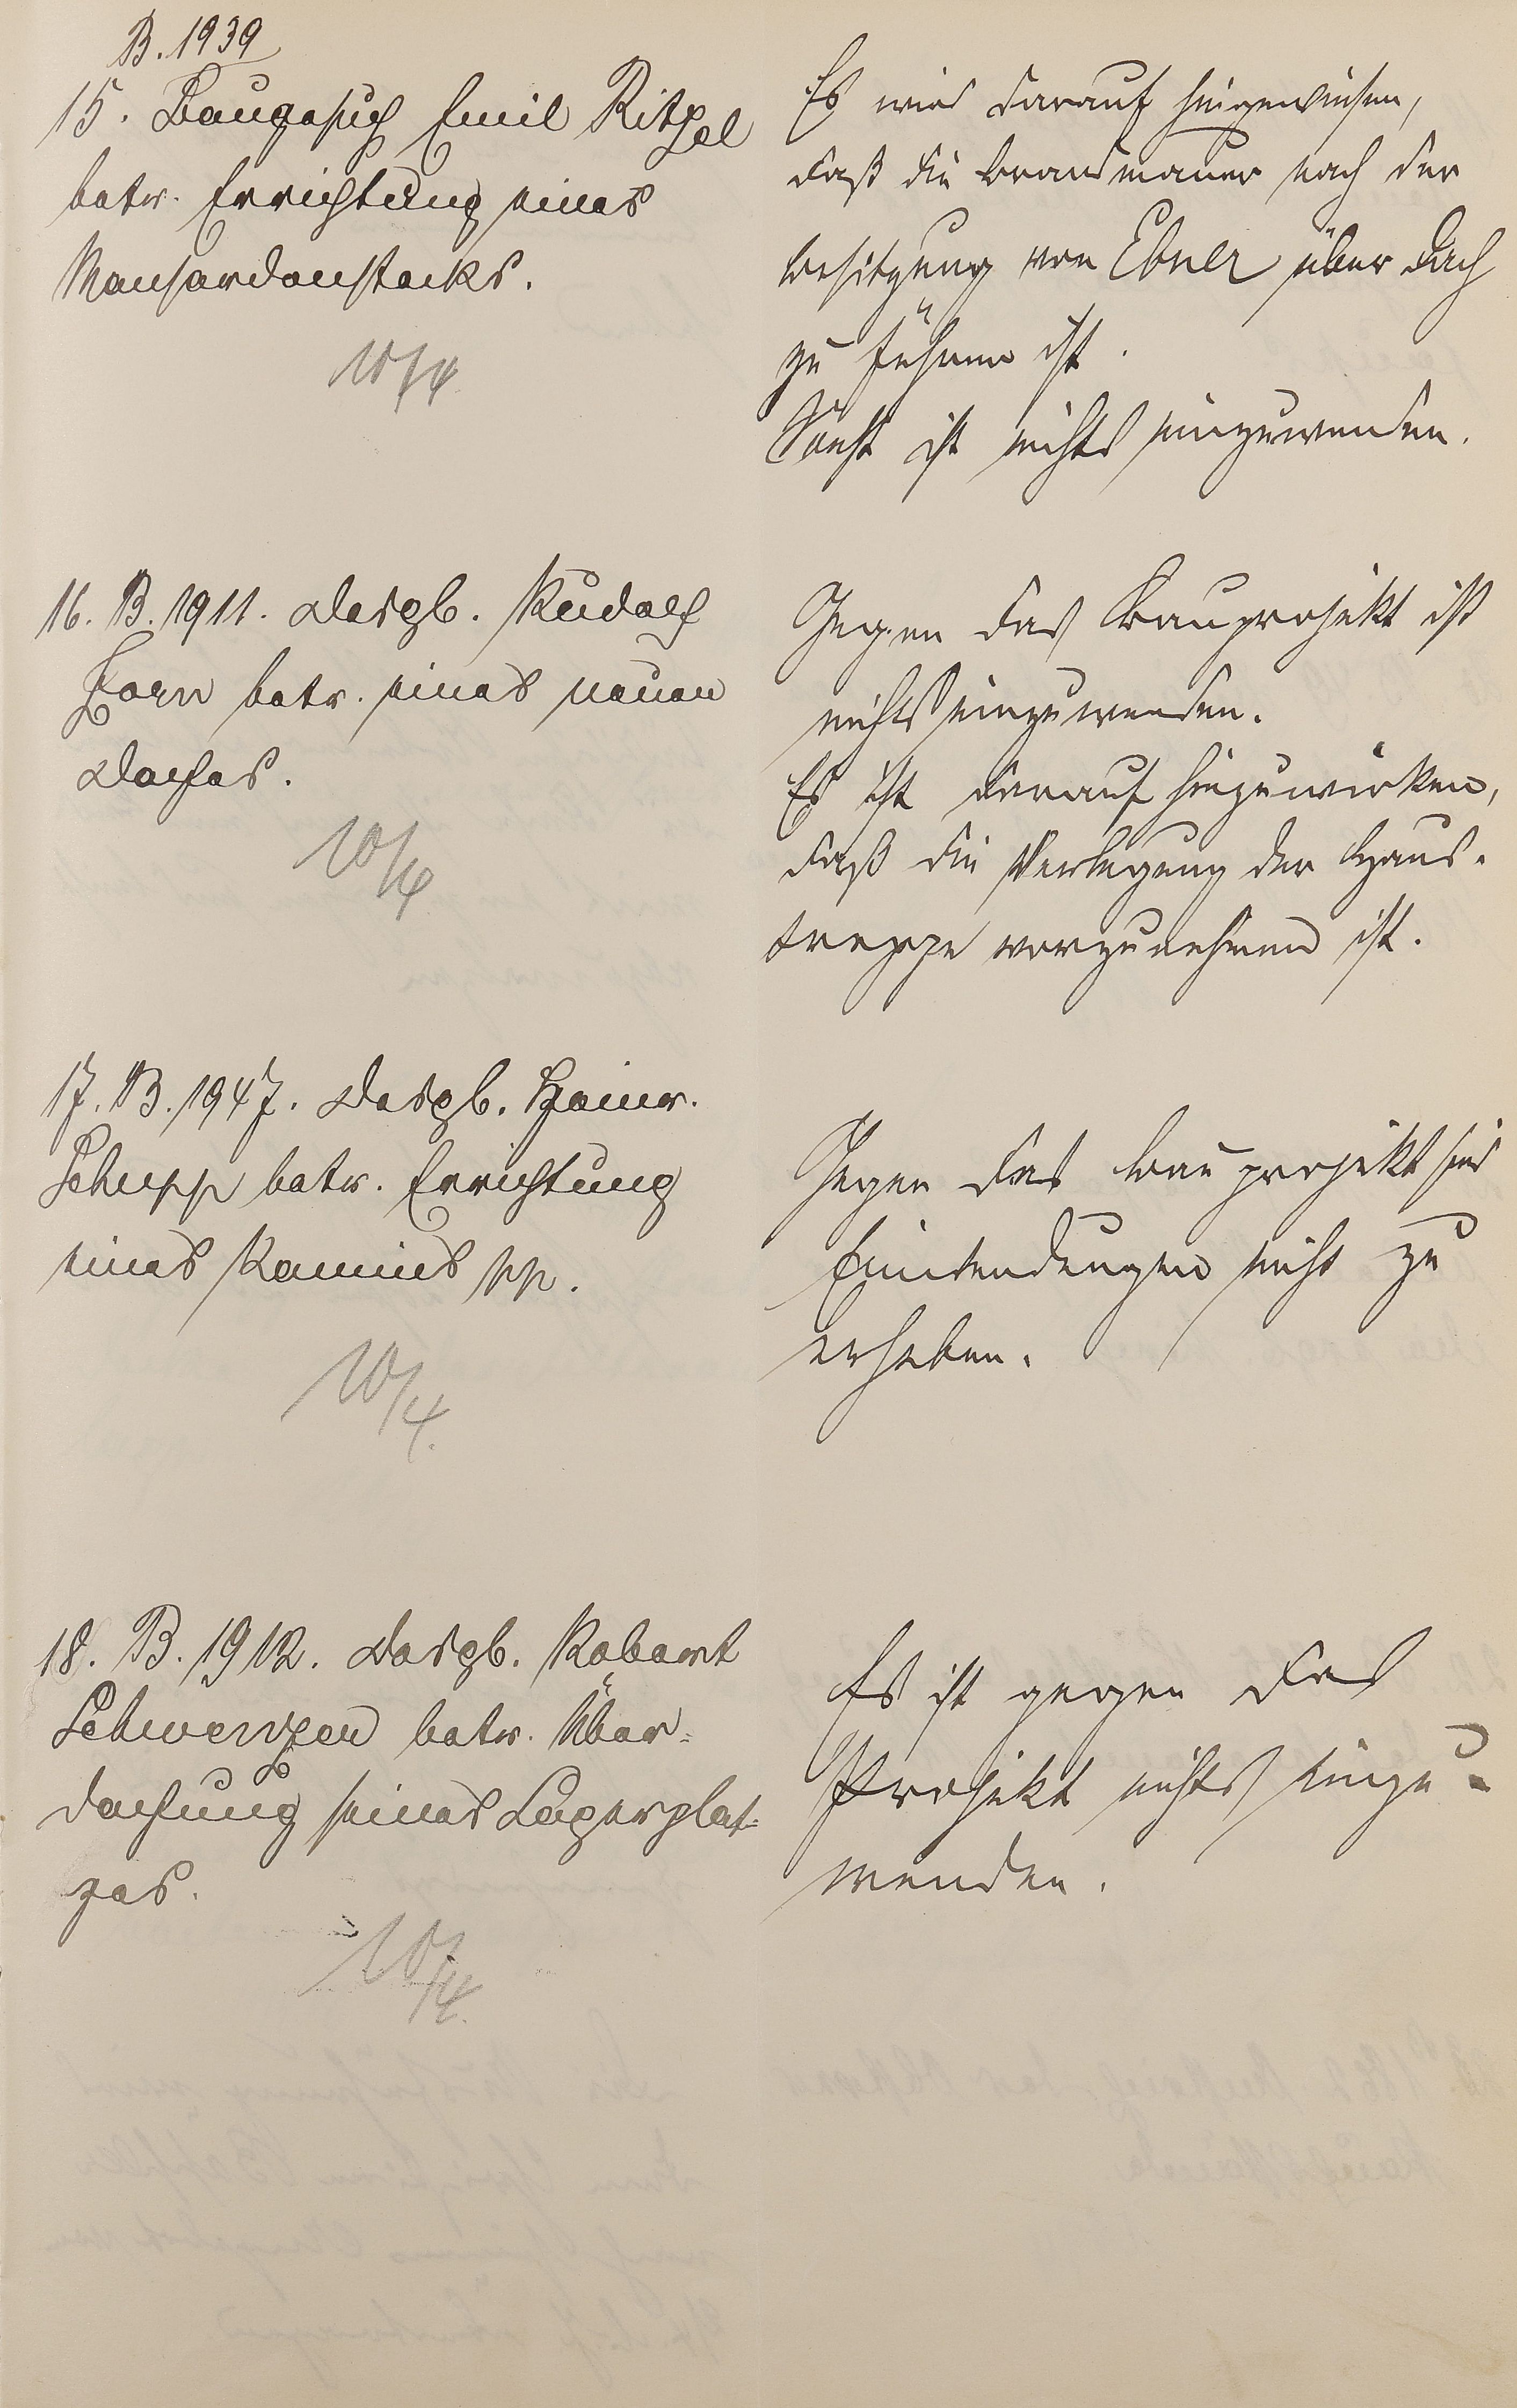 B. 1939
15. Baugesuch Emil Ritzel
betr. Errichtung eines
Mansardenstocks.
10/4.
Es wird darauf hingewiesen,
daß die Brandmauer nach der
Besitzung von Ebner über Dach
zu führen ist.
Sonst ist nichts einzuwenden.
16. B. 1911. Desgl. Rudolf
Zorn betr. eines neuen
Daches.
10/4
Gegen das Bauprojekt ist
nichts einzuwenden.
Es ist darauf hinzuwirken,
daß die Verlegung der Haus-
treppe vorzunehmen ist.
17. B. 1947. Desgl. Heinr.
Schupp betr. Errichtung
eines Kamins pp.
10/4.
Gegen das Bauprojekt sind
Einwendungen nicht zu
erheben.
18. B. 1912. Desgl. Robert
Schwenzer betr. Über-
dachung seines Lagerplat-
zes.
10/4.
Es ist gegen das
Projekt nichts einzu-
wenden.